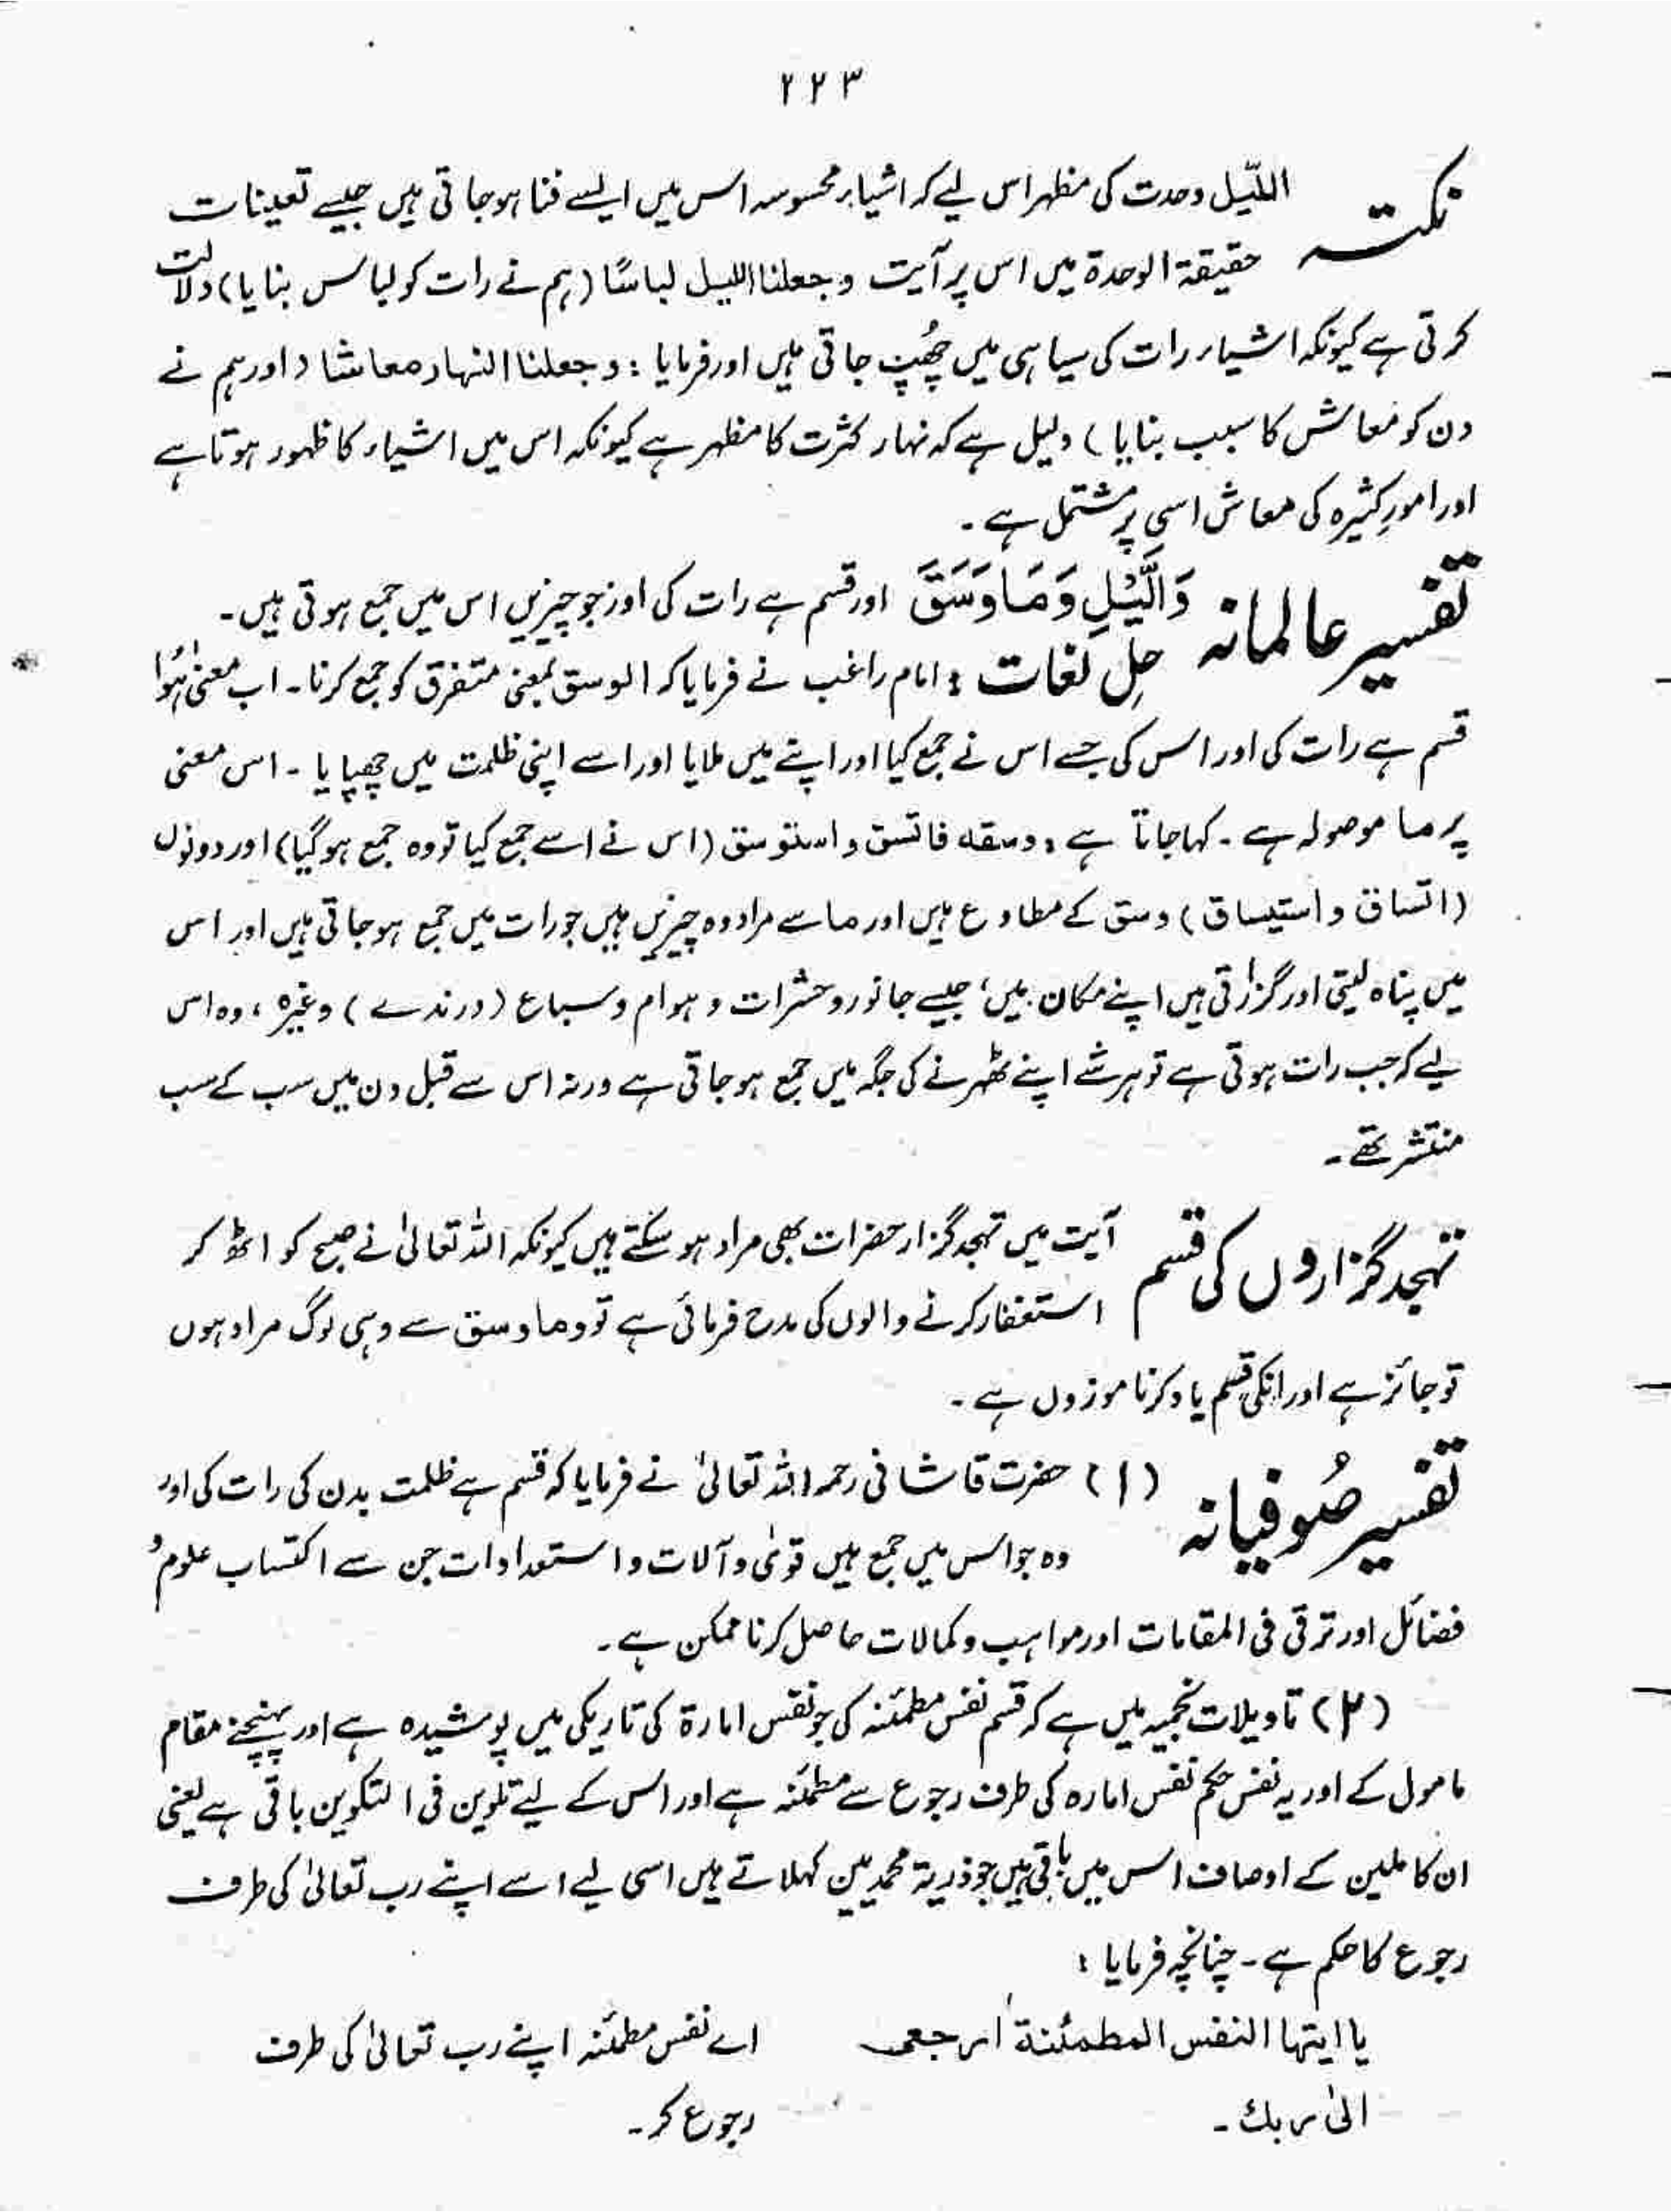 ۲۲۳
نکتہ اللّیل وحدت کی مظہر اس لیے کہ اشیاء محسوسہ اس میں ایسے فنا ہو جاتی ہیں جیسے تعینات
حقیقۃ الوحدۃ میں اس پر آیت وجعلنا الليل لباسًا (ہم نے رات کو لباس بنایا) دلالت
کرتی ہے کیونکہ اشیاء رات کی سیاہی میں چھُپ جاتی ہیں اور فرمایا : وجعلنا النهار معاشا (اور ہم نے
دن کو معاش کا سبب بنایا) دلیل ہے کہ نہار کثرت کا مظہر ہے کیونکہ اس میں اشیاء کا ظہور ہوتا ہے
اور امورِ کثیرہ کی معاش اسی پر مشتمل ہے ۔
تفسیر عالمانہ وَالَّيْلِ وَمَا وَسَقَ اور قسم ہے رات کی اور جو چیزیں اس میں جمع ہوتی ہیں ۔
حلِ لغات : امام راغب نے فرمایا کہ الوسق بمعنی متفرق کو جمع کرنا ۔ اب معنیٰ ہُوا
قسم ہے رات کی اور اس کی جسے اس نے جمع کیا اور اپنے میں ملایا اور اسے اپنی ظلمت میں چھپایا ۔ اس معنی
پر ما موصولہ ہے ۔ کہا جاتا ہے : وسقه فاتسق و استوسق (اس نے اسے جمع کیا تو وہ جمع ہو گیا) اور دونوں
(اتساق و استیساق) وسق کے مطاوع ہیں اور ما سے مراد وہ چیزیں ہیں جو رات میں جمع ہو جاتی ہیں اور اس
میں پناہ لیتی اور گزارتی ہیں اپنے مکان میں ، جیسے جانور و حشرات و ہوام و سباع (درندے) وغیرہ ، وہ اس
لیے کہ جب رات ہوتی ہے تو ہر شے اپنے ٹھہرنے کی جگہ میں جمع ہو جاتی ہے ورنہ اس سے قبل دن میں سب کے سب
منتشر تھے ۔
تہجد گزاروں کی قسم آیت میں تہجد گزار حضرات بھی مراد ہو سکتے ہیں کیونکہ اللہ تعالیٰ نے صبح کو اٹھ کر
استغفار کرنے والوں کی مدح فرمائی ہے تو وما وسق سے وہی لوگ مراد ہوں
تو جائز ہے اور انکی قسم یاد کرنا موزوں ہے ۔
تفسیر صُوفیانہ (۱) حضرت قاشانی رحمہ اللہ تعالیٰ نے فرمایا کہ قسم ہے ظلمت بدن کی رات کی اور
وہ جو اس میں جمع ہیں قویٰ و آلات و استعدادات جن سے اکتساب علوم و
فضائل اور ترقی فی المقامات اور مواہب و کمالات حاصل کرنا ممکن ہے ۔
(۲) تاویلات نجمیہ میں ہے کہ قسم نفس مطمئنہ کی جو نفس امارۃ کی تاریکی میں پوشیدہ ہے اور پہنچنے مقام
مامول کے اور یہ نفس حکم نفس امارہ کی طرف رجوع سے مطمئنہ ہے اور اس کے لیے تلوین فی التکوین باقی ہے یعنی
ان کاملین کے اوصاف اس میں باقی ہیں جو ذریۃ محمدیین کہلاتے ہیں اسی لیے اسے اپنے رب تعالیٰ کی طرف
رجوع کا حکم ہے ۔ چنانچہ فرمایا :
یا ایتها النفس المطمئنة ارجعی
الیٰ ربك ۔
اے نفس مطمئنہ اپنے رب تعالیٰ کی طرف
رجوع کر ۔